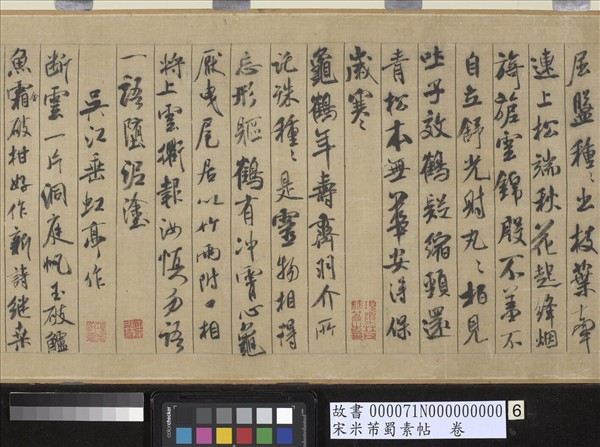 屈盤種種出枝葉牽
連上松端秋花起絳烟
旖旎雲錦殷不羞不
自立舒光射丸丸柏見
吐子效鶴疑縮頸還
青松本無華安得保
歲寒
龜鶴年壽齊羽介所
託殊種種是靈物相得
忘形軀鶴有冲霄心龜
厭曳尾居以竹兩附口相
將上雲衢報汝慎勿語
一語墮泥塗
吳江垂虹亭作
断雲一片洞庭帆玉破鱸
魚霜破柑好作新詩継桑
故書 000071N000000000 6
宋米芾蜀素帖 卷
colorchecker